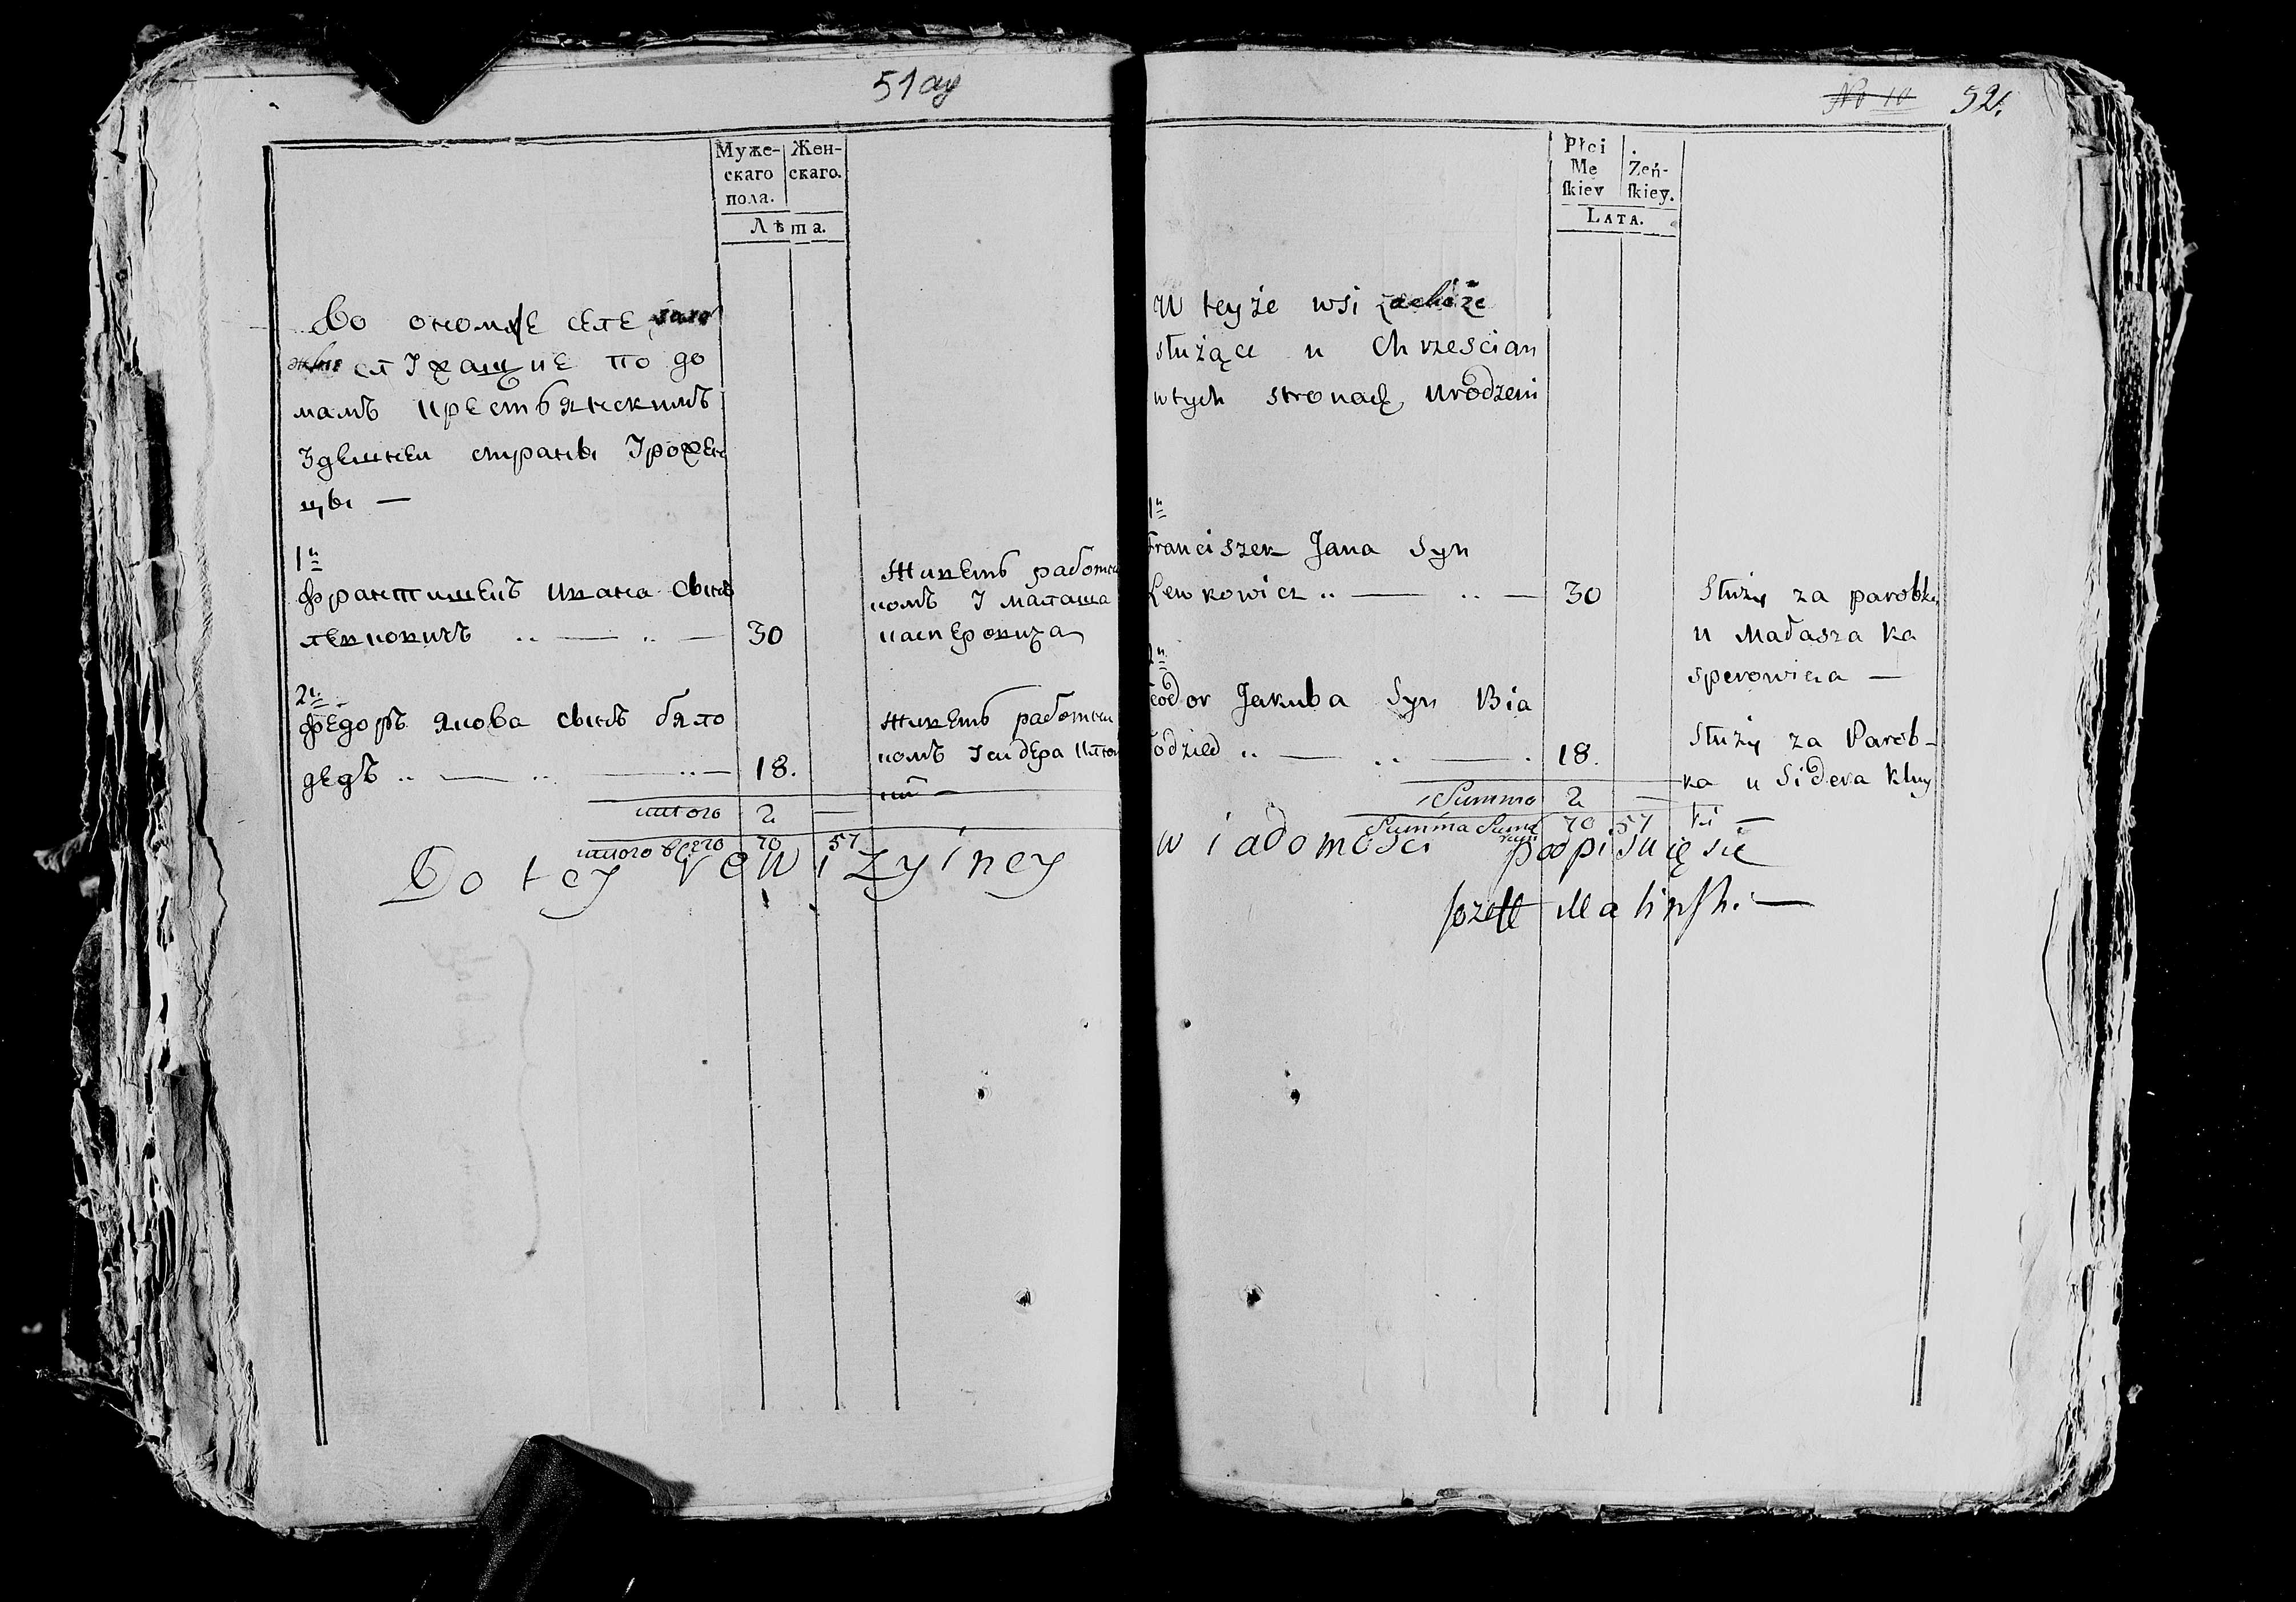 51 об
Муже-
скаго
пола.
Жен-
скаго.
Лѣта.
Во ономже селе
слУжащие по до
мамъ крестьянскимъ
Здешнеи страны Урожен
цы —
1й
Франтишекъ ивана сынъ
левковичъ .. — .. — 30
Живетъ работни
комъ У малаша
касперовича
2й
Федоръ якова сынъ бяло
дедъ .. — .. — .. — 18.
Живетъ работни
комъ У сидера
итого 2 —
итого всего 70 57
Do tey rewizyiney
No 10 52.
Płci
Mę
ſkiey
Żeń-
ſkiey.
Lata.
W teyże wsi zachoże
służące u Chrzescian
w tych stronach urodzeni
1й
Franciszek Jana Syn
Lewkowicz .. — .. — 30
Służy za parobka
u Małasza Ka
sperowicza —
2й
eodor Jakuba Syn Bia
łodzied .. — .. — . 18.
Służy za Parob-
ka u Sidera Kluy
ki —
Summa 2 —
Summa Summa
rum 70 57
wiadomości podpisuię się
Jozeff Malinſki —